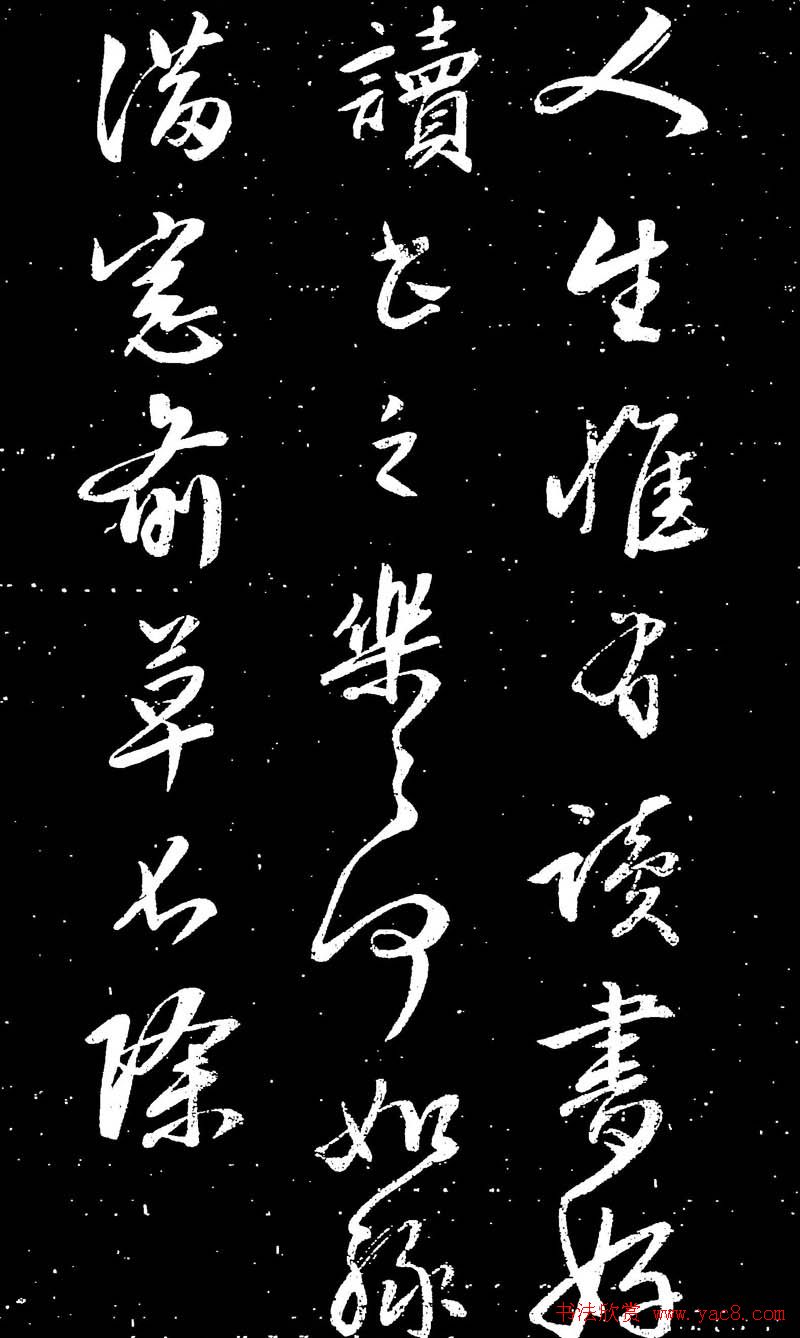 人生惟有讀書好
讀書之樂樂何如綠
滿窓前草不除
书法欣赏 www.yac8.com